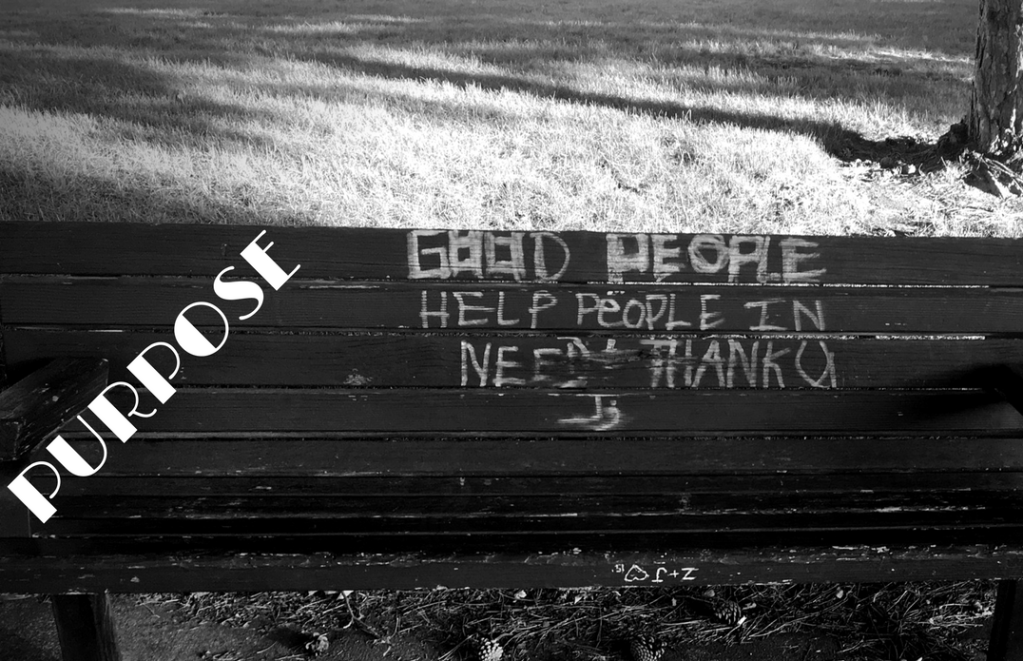 GOOD PEOPLE
HELP PEOPLE IN
NEED THANK U
PURPOSE
Z+J